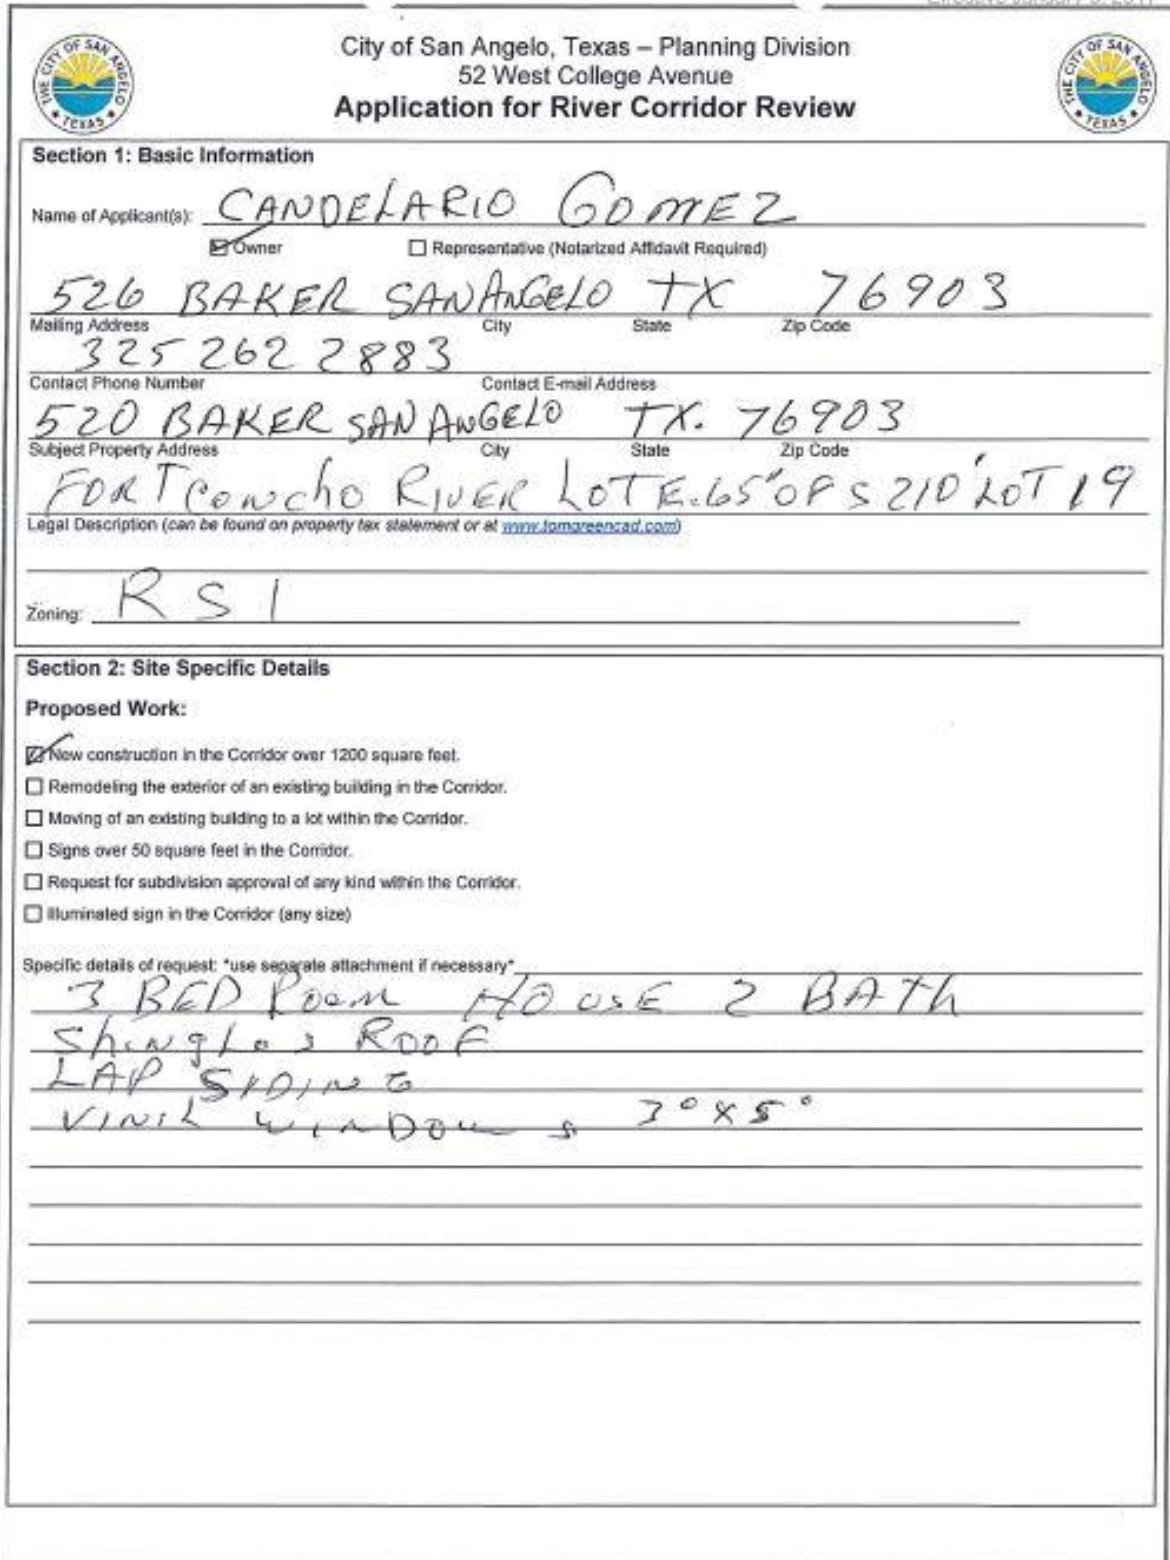 THE CITY OF SAN ANGELO
TEXAS
City of San Angelo, Texas – Planning Division
52 West College Avenue
Application for River Corridor Review
THE CITY OF SAN ANGELO
TEXAS
Section 1: Basic Information
Name of Applicant(s): CANDELARIO GOMEZ
Owner Representative (Notarized Affidavit Required)
526 BAKER SAN ANGELO TX 76903
Mailing Address City State Zip Code
325 262 2883
Contact Phone Number Contact E-mail Address
520 BAKER SAN ANGELO TX. 76903
Subject Property Address City State Zip Code
FORT CONCHO RIVER LOT E.65' OF S 210' LOT 19
Legal Description (can be found on property tax statement or at www.tomgreencad.com)
Zoning: RS1
Section 2: Site Specific Details
Proposed Work:
New construction in the Corridor over 1200 square feet.
Remodeling the exterior of an existing building in the Corridor.
Moving of an existing building to a lot within the Corridor.
Signs over 50 square feet in the Corridor.
Request for subdivision approval of any kind within the Corridor.
Illuminated sign in the Corridor (any size)
Specific details of request: *use separate attachment if necessary*
3 BED ROOM HOUSE 2 BATH
Shingles ROOF
LAP SIDING
VINIL WINDOWS 3° X 5°